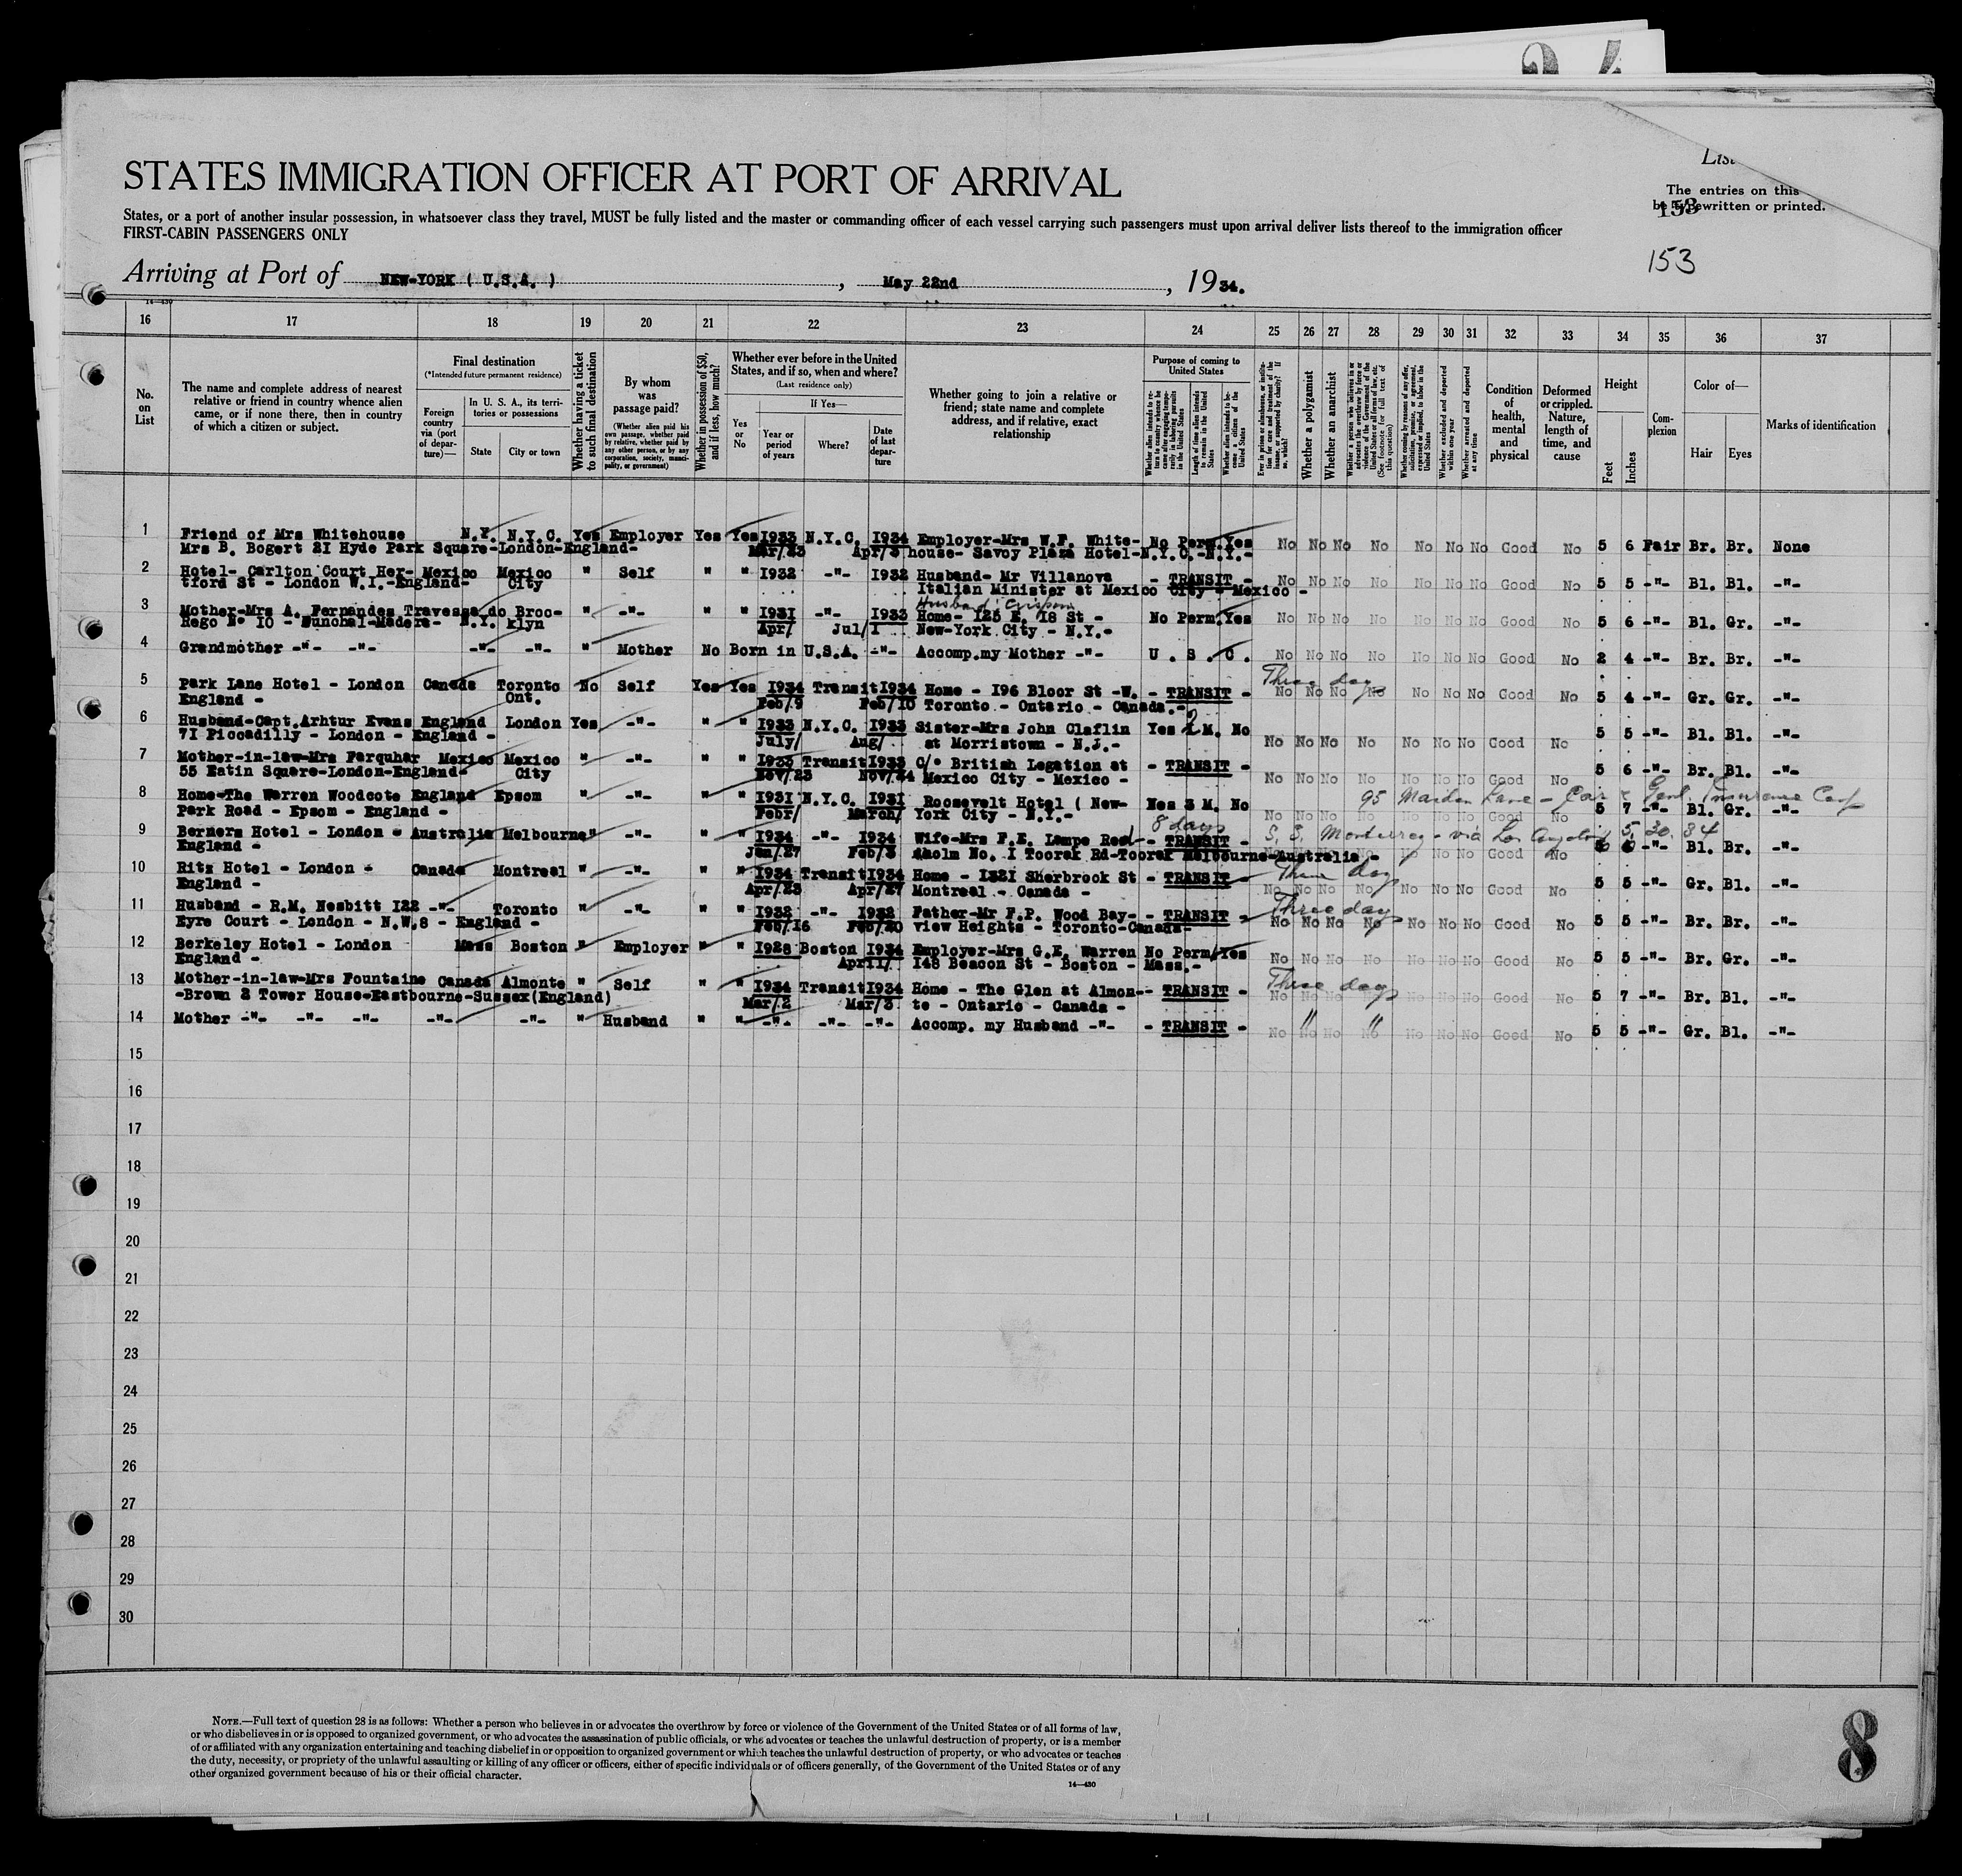 24
STATES IMMIGRATION OFFICER AT PORT OF ARRIVAL
List
The entries on this
be typewritten or printed.
153
States, or a port of another insular possession, in whatsoever class they travel, MUST be fully listed and the master or commanding officer of each vessel carrying such passengers must upon arrival deliver lists thereof to the immigration officer
FIRST-CABIN PASSENGERS ONLY
153
Arriving at Port of NEW-YORK ( U.S.A. ) , May 22nd , 1934.
14—430
16 17 18 19 20 21 22 23 24 25 26 27 28 29 30 31 32 33 34 35 36 37
No. on List
The name and complete address of nearest relative or friend in country whence alien came, or if none there, then in country of which a citizen or subject.
Final destination
(*Intended future permanent residence)
Foreign country via (port of departure)—
In U. S. A., its territories or possessions
State
City or town
Whether having a ticket to such final destination
By whom was passage paid?
(Whether alien paid his own passage, whether paid by relative, whether paid by any other person, or by any corporation, society, municipality, or government)
Whether in possession of $50, and if less, how much?
Whether ever before in the United States, and if so, when and where?
(Last residence only)
Yes or No
If Yes—
Year or period of years
Where?
Date of last departure
Whether going to join a relative or friend; state name and complete address, and if relative, exact relationship
Purpose of coming to United States
Whether alien intends to return to country whence he came after engaging temporarily in laboring pursuits in the United States
Length of time alien intends to remain in the United States
Whether alien intends to become a citizen of the United States
Ever in prison or almshouse, or institution for care and treatment of the insane, or supported by charity? If so, which?
Whether a polygamist
Whether an anarchist
Whether a person who believes in or advocates the overthrow by force or violence of the Government of the United States or of all forms of law, etc. (See footnote for full text of this question)
Whether coming by reasons of any offer, solicitation, promise, or agreement, expressed or implied, to labor in the United States
Whether excluded and deported within one year
Whether arrested and deported at any time
Condition of health, mental and physical
Deformed or crippled. Nature, length of time, and cause
Height
Feet
Inches
Complexion
Color of—
Hair
Eyes
Marks of identification
1 Friend of Mrs Whitehouse N.Y. N.Y.C. Yes Employer Yes Yes 1933 N.Y.C. 1934 Employer-Mrs W.F. White- No Perm. Yes No No No No No No No Good No 5 6 Fair Br. Br. None
Mrs B. Bogert 21 Hyde Park Square-London-England- Mar/23 Apr/3 house- Savoy Plaza Hotel-N.Y.C.-N.Y.-
2 Hotel- Carlton Court Her- Mexico Mexico " Self " " 1932 -"- 1932 Husband- Mr Villanova - TRANSIT - No No No No No No No Good No 5 5 -"- Bl. Bl. -"-
tford St - London W.I.-England- City Italian Minister at Mexico City - Mexico -
Husband
3 Mother-Mrs A. Fernandes Travessa do Broo- " -"- " " 1931 -"- 1933 Home- 125 E. 18 St - No Perm. Yes No No No No No No No Good No 5 6 -"- Bl. Gr. -"-
Rego N° 10 - Funchal-Madera- N.Y. klyn Apr/ Jul/1 New-York City - N.Y.-
4 Grandmother -"- -"- -"- -"- " Mother No Born in U.S.A. -"- Accomp.my Mother -"- U . S . C . No No No No No No No Good No 2 4 -"- Br. Br. -"-
Three days
5 Park Lane Hotel - London Canada Toronto No Self Yes Yes 1934 Transit 1934 Home - 196 Bloor St -W. - TRANSIT - No No No No No No No Good No 5 4 -"- Gr. Gr. -"-
England - Ont. Feb/9 Feb/10 Toronto - Ontario - Canada.-
6 Husband-Capt.Arhtur Evans England London Yes -"- " " 1933 N.Y.C. 1933 Sister-Mrs John Claflin Yes 2 M. No No No No No No No No Good No 5 5 -"- Bl. Bl. -"-
71 Piccadilly - London - England - July/ Aug/ at Morristown - N.J.-
7 Mother-in-law-Mrs Farquhar Mexico Mexico " -"- " " 1933 Transit 1933 C/° British Legation at - TRANSIT - No No No No No No No Good No 5 6 -"- Br. Bl. -"-
55 Eatin Square-London-England- City Nov/23 Nov/24 Mexico City - Mexico -
95 Maiden Lane - Car & Genl. Insurance Corp
8 Home-The Warren Woodcote England Epsom " -"- " " 1931 N.Y.C. 1931 Roosevelt Hotel ( New- Yes 3 M. No No No No No No No No Good No 5 7 -"- Bl. Gr. -"-
Park Road - Epsom - England - Febr/ March/ York City - N.Y.-
8 days S. S. Monterrey - via Los Angeles 5. 30. 34
9 Berners Hotel - London - Australia Melbourne " -"- " " 1934 -"- 1934 Wife-Mrs F.E. Lampe Red- - TRANSIT - No No No No Good No -"- Bl. Br. -"-
England - Jan/27 Feb/3 Aholm No. I Toorak Rd-Toorak Melbourne-Australia -
Three days
10 Ritz Hotel - London - Canada Montreal " -"- " " 1934 Transit 1934 Home - 1321 Sherbrook St - TRANSIT - No No No No No No No Good No 5 5 -"- Gr. Bl. -"-
England - Apr/23 Apr/27 Montreal - Canada -
Three days
11 Husband - R.M. Nesbitt 122 -"- Toronto " -"- " " 1932 -"- 1932 Father-Mr F.P. Wood Bay- - TRANSIT - No No No No No No No Good No 5 5 -"- Br. Br. -"-
Eyre Court - London - N.W.8 - England - Feb/16 Feb/20 view Heights - Toronto-Canada-
12 Berkeley Hotel - London Mass Boston " Employer " " 1928 Boston 1934 Employer-Mrs G.E. Warren No Perm/Yes No No No No No No No Good No 5 5 -"- Br. Gr. -"-
England - April/ 148 Beacon St - Boston - Mass.-
Three days
13 Mother-in-law-Mrs Fountaine Canada Almonte " Self " " 1934 Transit 1934 Home - The Glen at Almon-- TRANSIT - No No No No No No No Good No 5 7 -"- Br. Bl. -"-
-Brown 2 Tower House-Eastbourne-Sussex(England) Mar/2 Mar/3 te - Ontario - Canada -
14 Mother -"- -"- -"- -"- -"- " Husband " " -"- -"- -"- Accomp. my Husband -"- - TRANSIT - No No No No No No No Good No 5 5 -"- Gr. Bl. -"-
15
16
17
18
19
20
21
22
23
24
25
26
27
28
29
30
NOTE.—Full text of question 28 is as follows: Whether a person who believes in or advocates the overthrow by force or violence of the Government of the United States or of all forms of law,
or who disbelieves in or is opposed to organized government, or who advocates the assassination of public officials, or who advocates or teaches the unlawful destruction of property, or is a member
of or affiliated with any organization entertaining and teaching disbelief in or opposition to organized government or which teaches the unlawful destruction of property, or who advocates or teaches
the duty, necessity, or propriety of the unlawful assaulting or killing of any officer or officers, either of specific individuals or of officers generally, of the Government of the United States or of any
other organized government because of his or their official character.
14—430
8